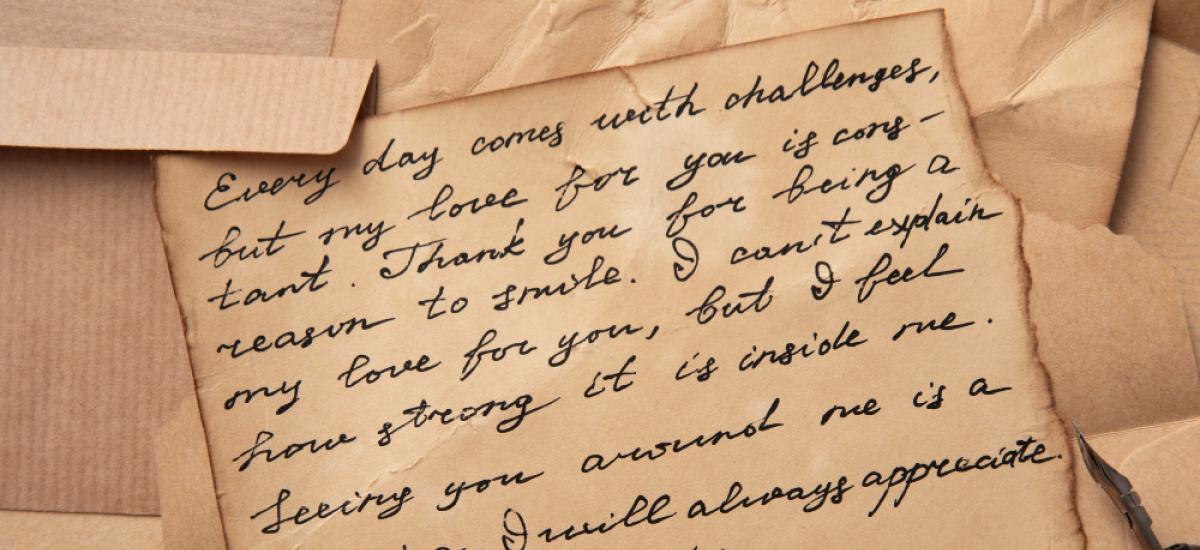 Every day comes with challenges,
but my love for you is cons-
tant. Thank you for being a
reason to smile. I can't explain
my love for you, but I feel
how strong it is inside me.
Seeing you around me is a
I will always appreciate.